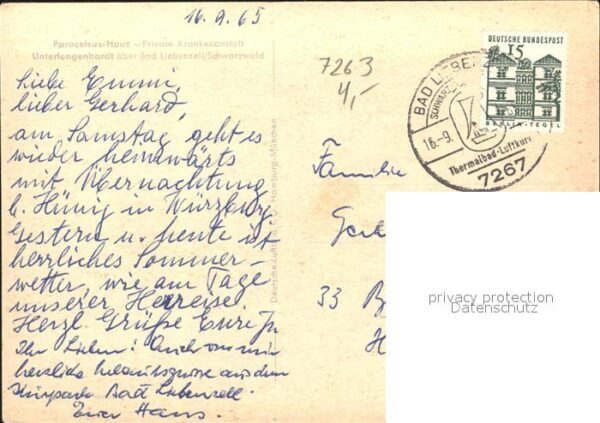 16.9.65
Paracelsus-Haus – Private Krankenanstalt
Unterlengenhardt über Bad Liebenzell/Schwarzwald
Liebe Emmi,
lieber Gerhard,
am Samstag geht es
wieder heimwärts
mit Übernachtung
b. Hünig in Würzburg.
Gestern u. heute ist
herrliches Sommer-
wetter, wie am Tage
unserer Herreise.
Herzl. Grüße Eure
Ihr Lieben! Auch von mir
herzliche Urlaubsgrüße aus dem
Kurpark Bad Liebenzell.
Euer Hans.
Hamburg-München
7263
4,-
DEUTSCHE BUNDESPOST
15
BERLIN-TEGEL
BAD LIEBENZELL
16.-9.
Thermalbad-Luftkurort
7267
Familie
33
privacy protection
Datenschutz